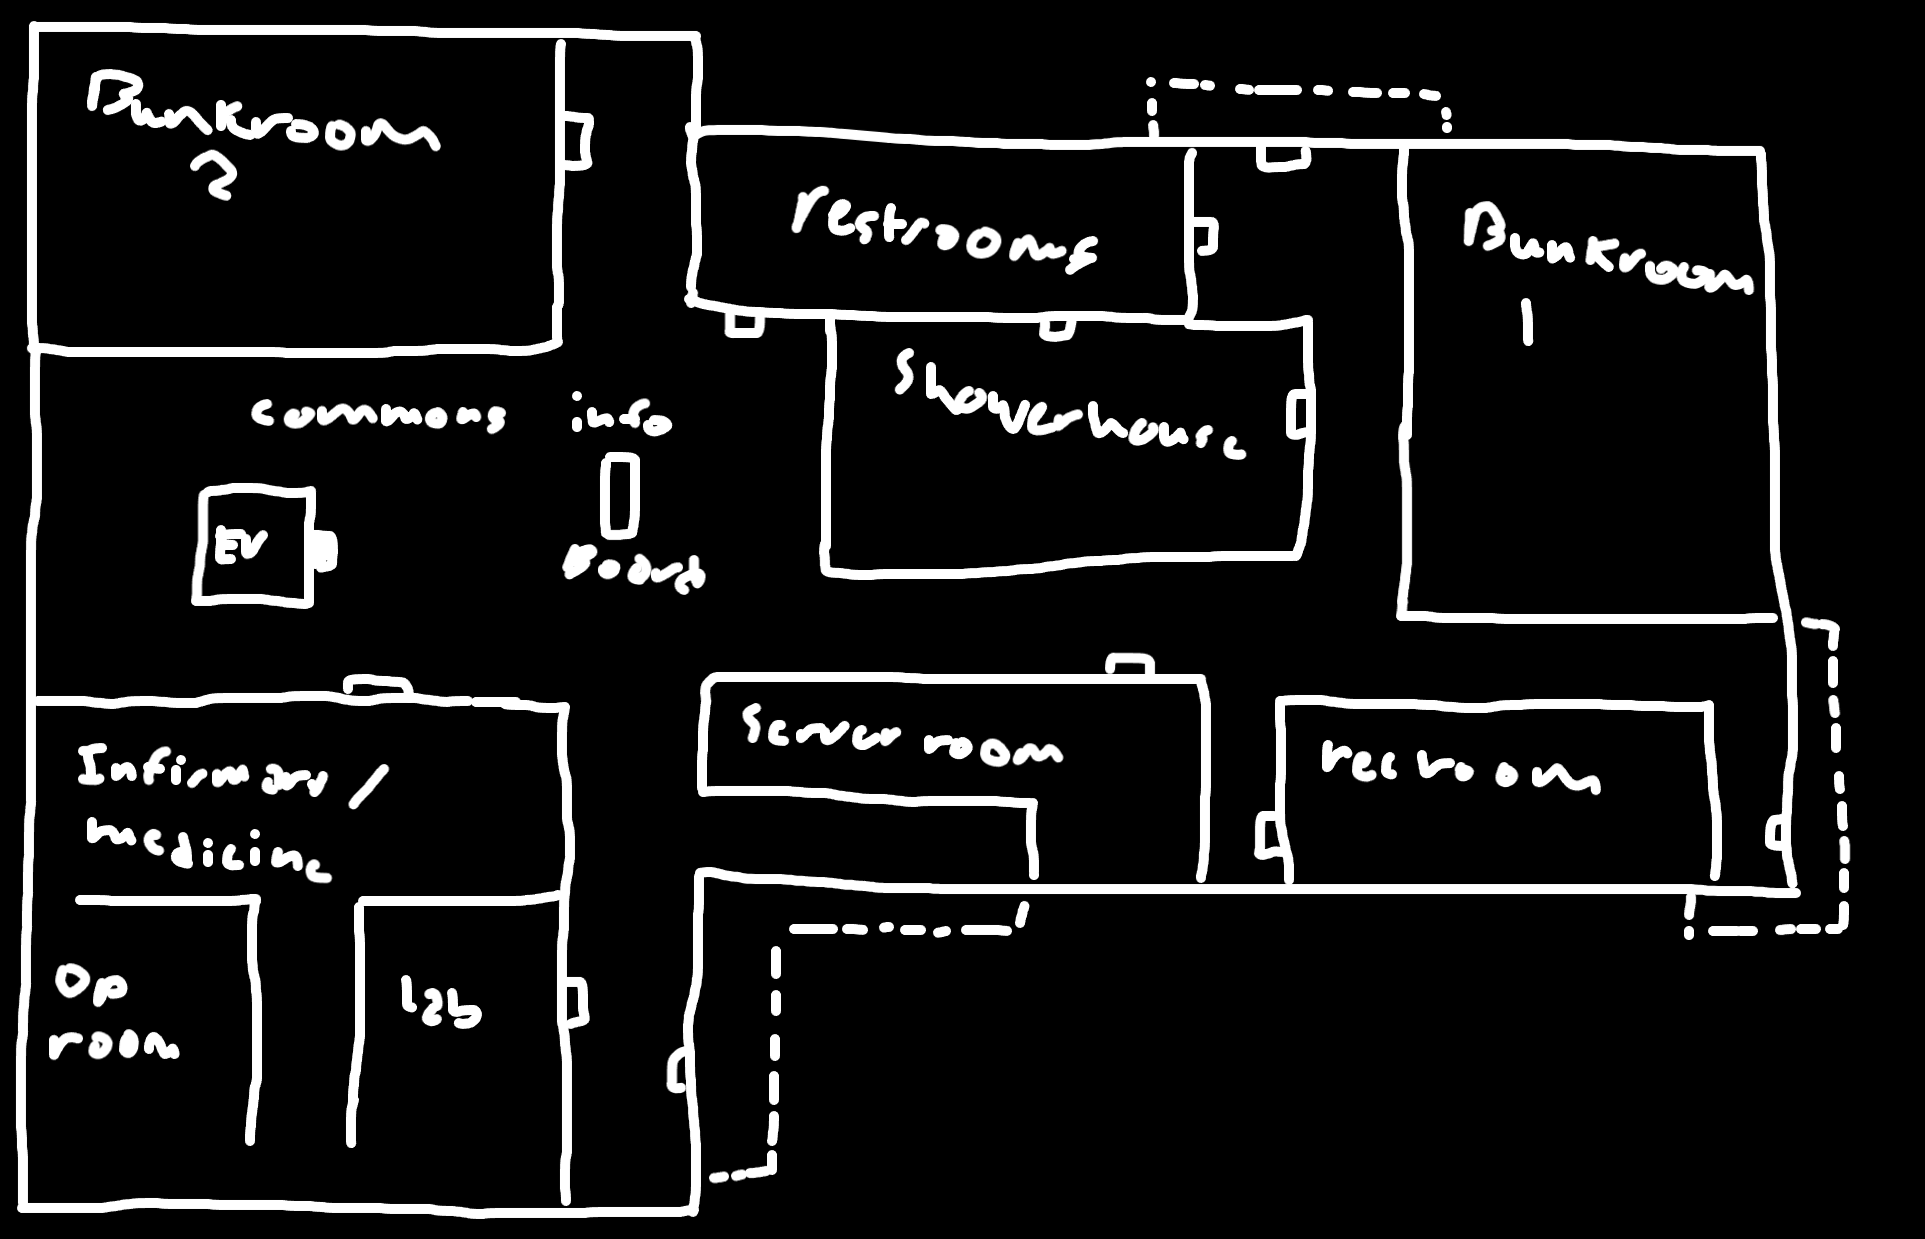 Bunkroom
2
restrooms
Bunkroom
1
showerhouse
commons
info
Board
EV
server room
rec room
Infirmary /
medicine
Op
room
lab